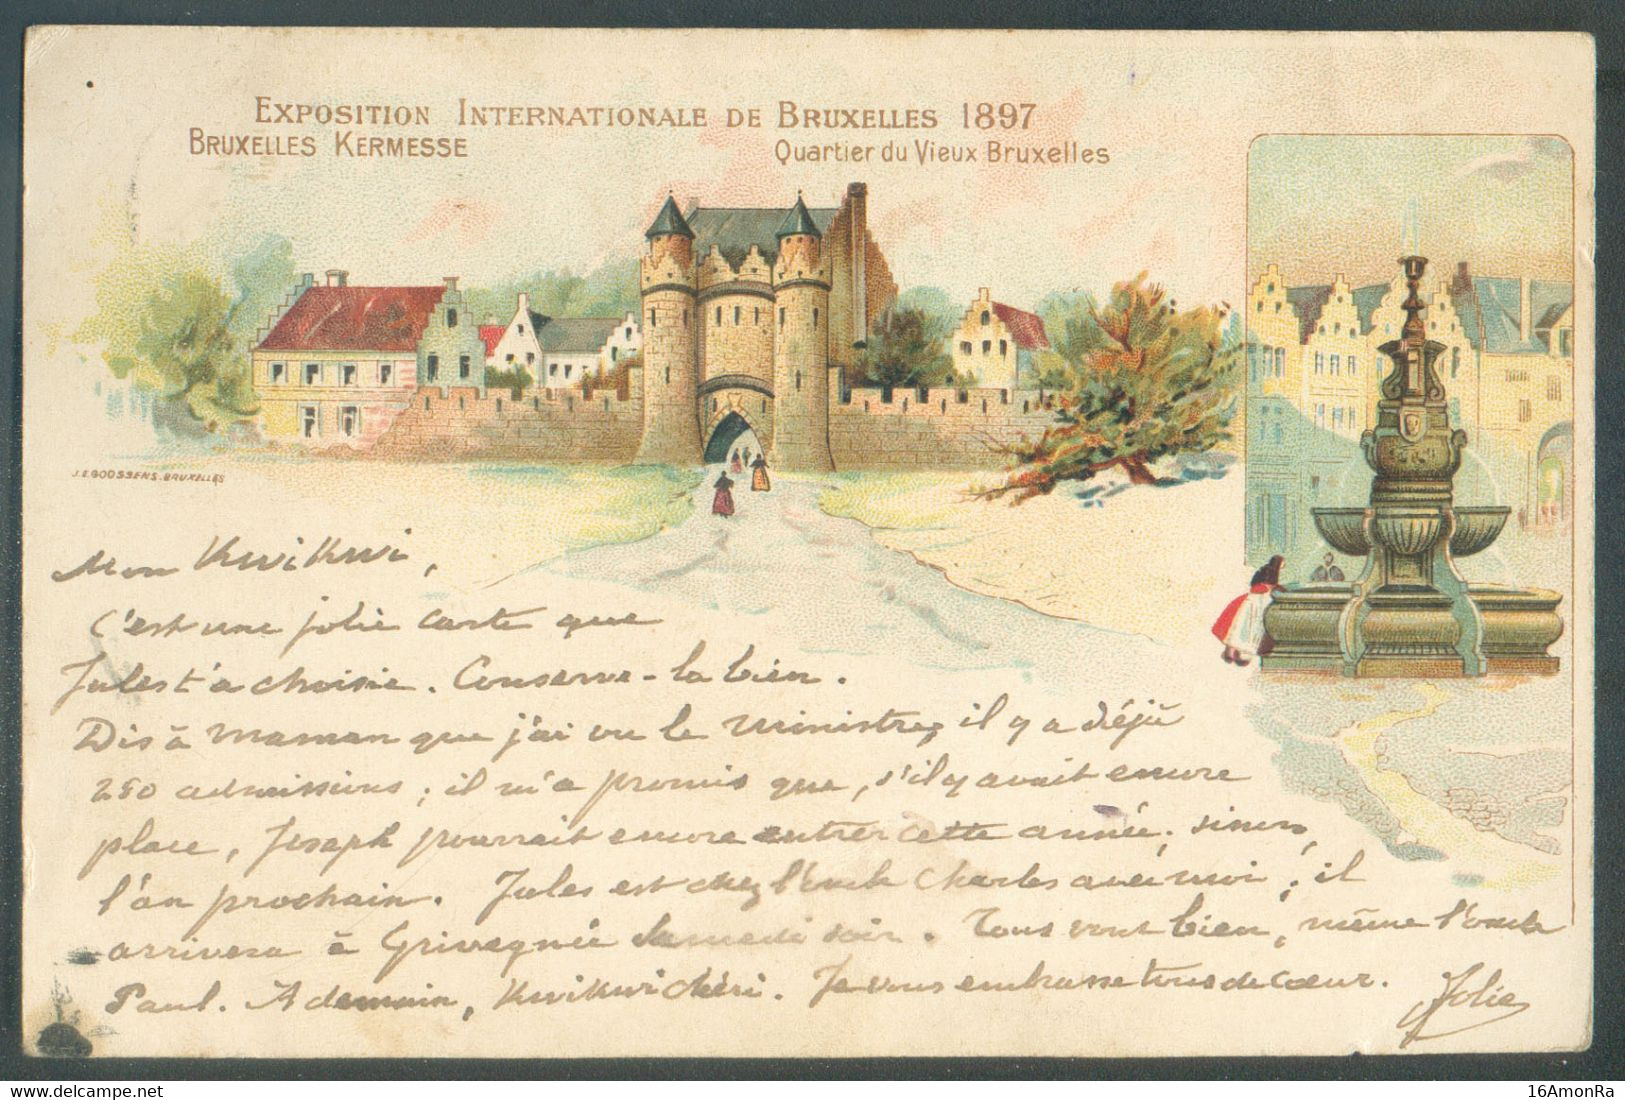 EXPOSITION INTERNATIONALE DE BRUXELLES 1897
BRUXELLES KERMESSE
Quartier du Vieux Bruxelles
J.E. GOOSSENS. BRUXELLES
Mon KwiKwi,
C'est une jolie carte que
Jules t'a choisie. Conserve-la bien.
Dis à maman que j'ai vu le ministre, il y a déjà
250 admissions ; il m'a promis que, s'il y avait encore
place, Joseph pourrait encore entrer cette année ; sinon,
l'an prochain. Jules est chez l'oncle Charles avec moi ; il
arrivera à Grivegnée samedi soir. Tous vont bien, même l'oncle
Paul. A demain, KwiKwi chéri. Je vous embrasse tous de cœur.
16AmonRa